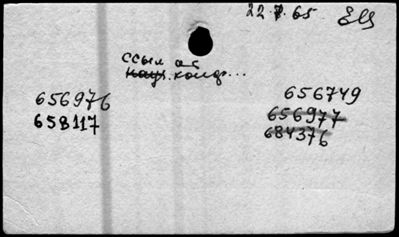 22.7.65. ЕЩ
ссыл
конф...
656976
658117
656749
656977
684376